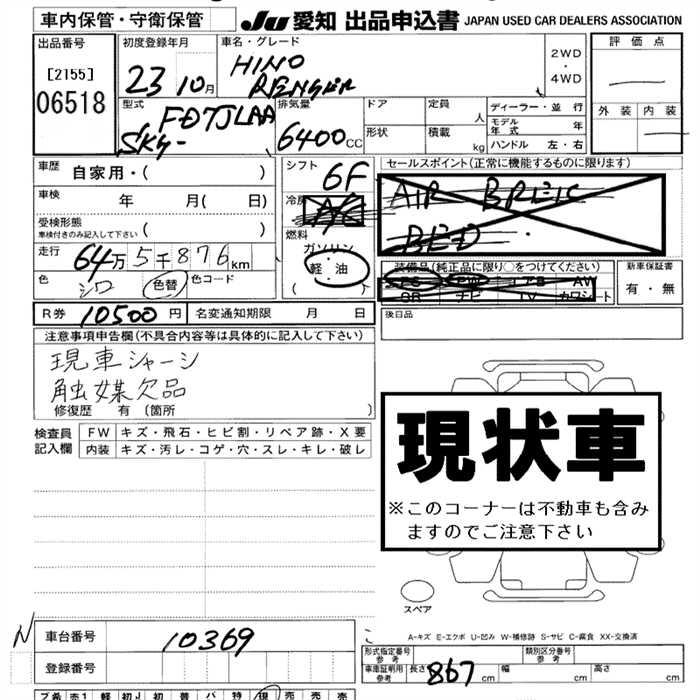 車内保管・守衛保管
JU 愛知 出品申込書 JAPAN USED CAR DEALERS ASSOCIATION
出品番号
[2155]
06518
初度登録年月
23 10月
車名・グレード
HINO
RENGER
2WD
・
4WD
評価点
外装 内装
型式
FD7JLAA
SKG-
排気量
6400CC
ドア
形状
定員 人
積載 kg
ディーラー・並行
モデル年式 年
ハンドル 左・右
車歴
自家用・( )
車検 年 月( 日)
受検形態
車検付きのみ記入して下さい ( )
走行 64万5千876km
色 シロ 色替 色コード
シフト 6F
冷房 A/C
燃料
ガソリン
軽・油
( )
セールスポイント(正常に機能するものに限ります)
AIR BREIC
BED
装備品(純正品に限り○をつけてください)
PS PW エアB AW
SR ナビ TV カワシート
新車保証書
有・無
R券 10500円 名変通知期限 月 日
後日品
注意事項申告欄(不具合内容等は具体的に記入して下さい)
現車シャーシ
触媒欠品
修復歴 有 〔箇所 〕
検査員記入欄
FW キズ・飛石・ヒビ割・リペア跡・X要
内装 キズ・汚レ・コゲ・穴・スレ・キレ・破レ
現状車
※このコーナーは不動車も含み
ますのでご注意下さい
スペア
A-キズ E-エクボ U-凹み W-補修跡 S-サビ C-腐食 XX-交換済
N
車台番号 10369
登録番号
形式指定番号
参考
類別区分番号
参考
車庫証明用
参考
長さ 867cm 幅 cm 高さ cm